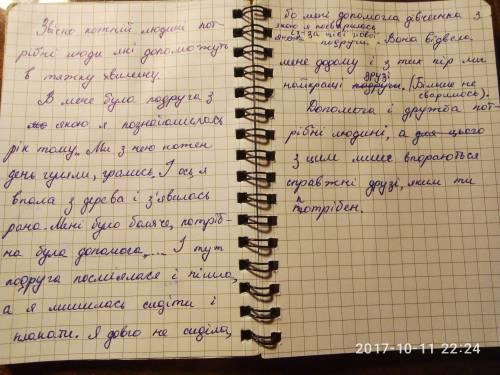 Звісно кожній людині пот-
рібні люди які допоможуть
в тяжку хвилину.
В мене була подруга з
якою я познайомилась
рік тому. Ми з нею кожен
день гуляли, грались, І ось я
впала з дерева і з'явилась
рана. Мені було боляче, потріб-
на була допомога,.... І тут
подруга посміялася і пішла,
а я лишилась сидіти і
плакати. Я довго не сиділа,
бо мені допомогла дівчинка з
якою я посварилась
із-за цієї нової
подруги. Вона відвела
мене додому і з тих пір ми
найкращі друзі. (Більше не
сварились).
Допомога і дружба пот-
рібні людині, а для цього
з цим лише впораються
справжні друзі, яким ти
потрібен.
2017-10-11 22:24